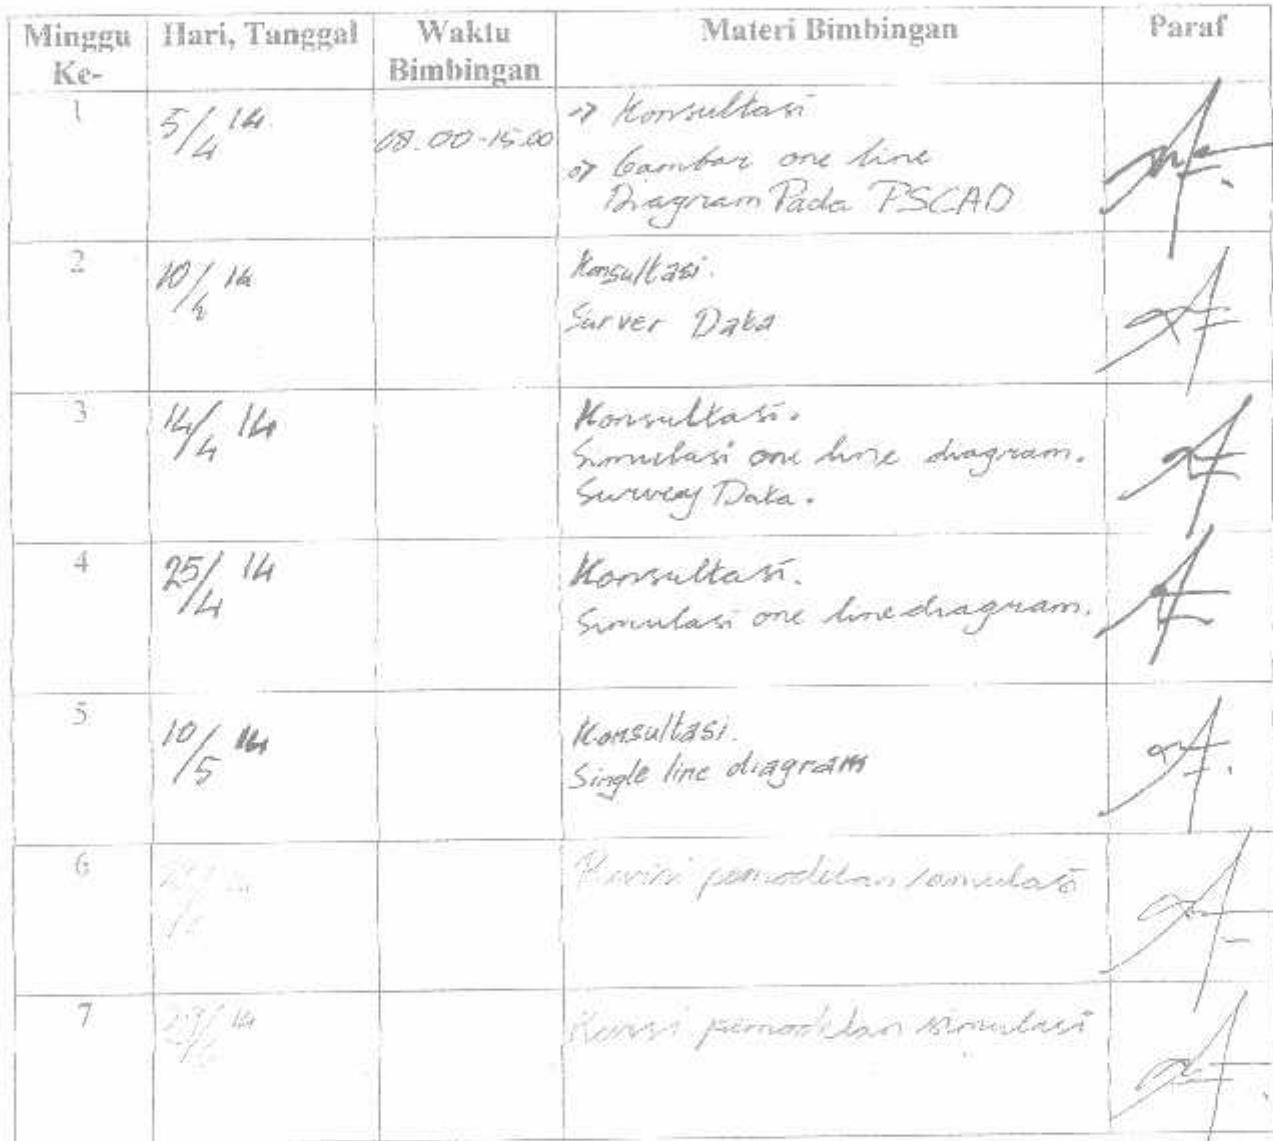 Minggu Ke-
Hari, Tanggal
Waktu Bimbingan
Materi Bimbingan
Paraf
1
5/4 14
08.00-15.00
Konsultasi
Gambar one line
Diagram Pada PSCAD
2
10/4 14
Konsultasi.
Surver Data
3
14/4 14
Konsultasi.
Simulasi one line diagram.
Survey Data.
4
25/4 14
Konsultasi.
Simulasi one line diagram.
5
10/5 14
Konsultasi.
Single line diagram
6
Revisi pemodelan simulasi
7
14
Revisi pemodelan simulasi